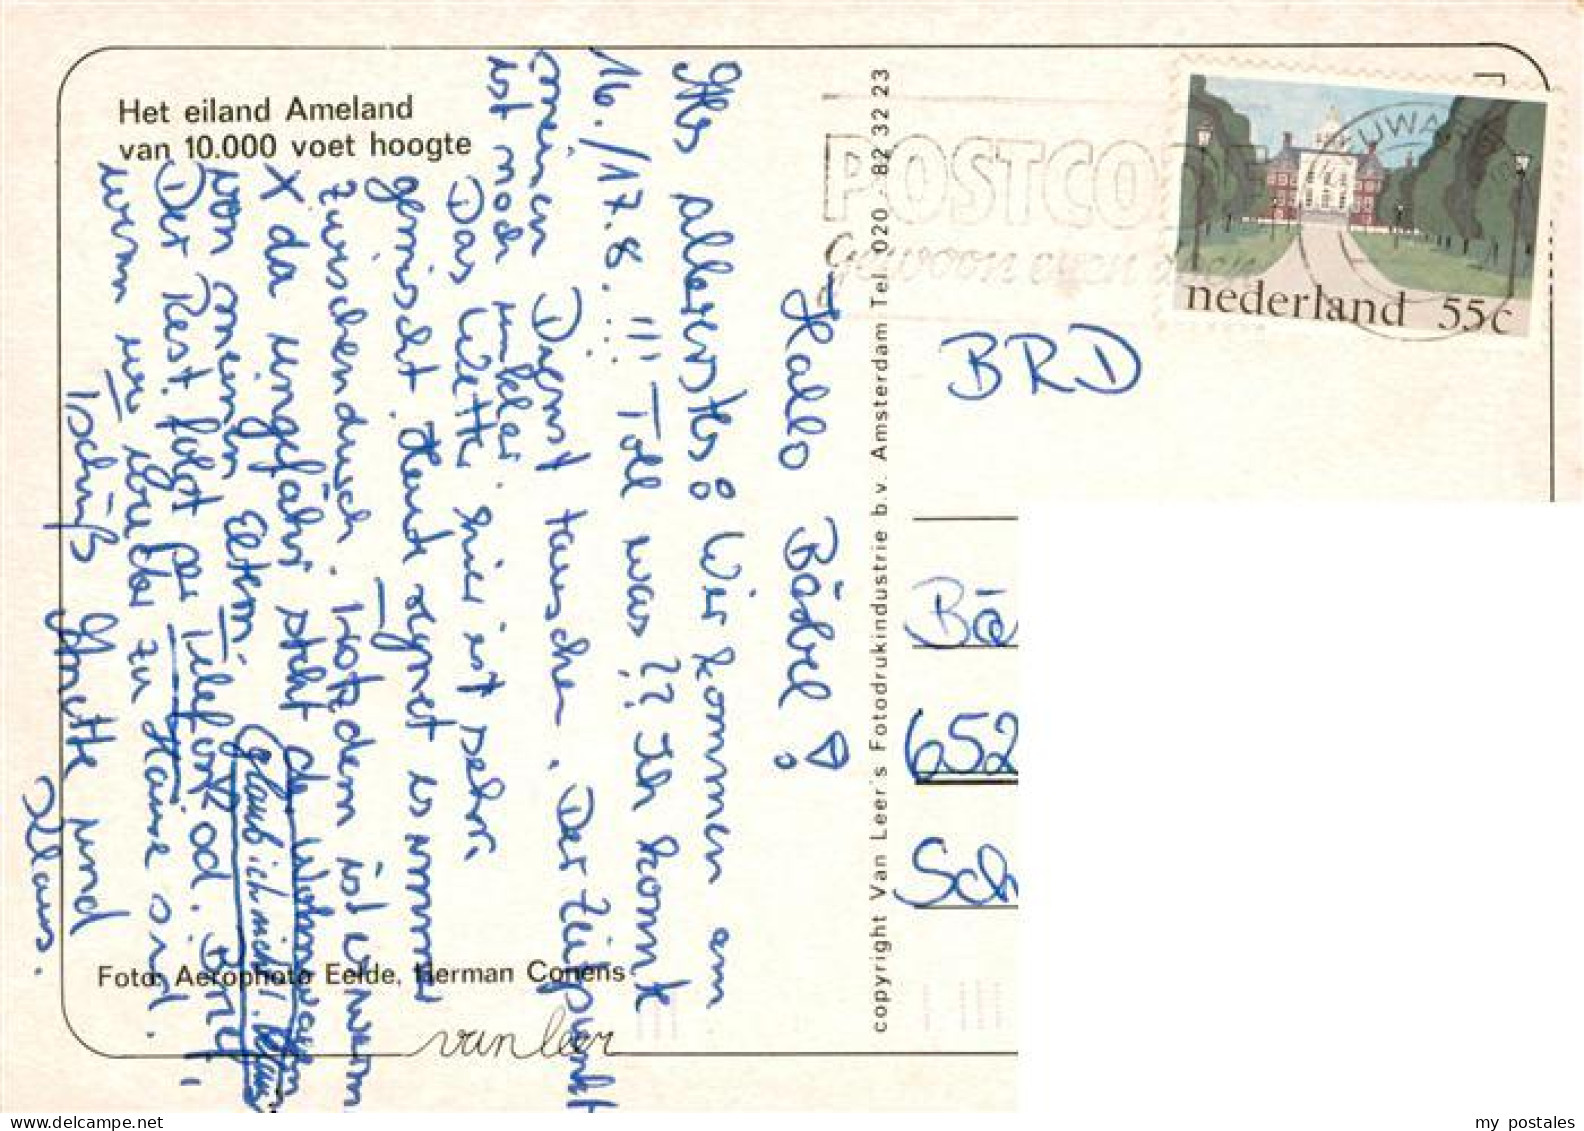 Het eiland Ameland
van 10.000 voet hoogte
Hallo Bärbel!
Alles allererstes: Wir kommen am
16./17.8.!!! Toll was?? Ich konnte
meinen Dienst tauschen. Der Zeitpunkt
ist noch unklar.
Das Wetter hier ist sehr
gemischt. Heute regnet es immer
zwischendurch. Trotzdem ist es warm
X da ungefähr steht der Wohnwagen
von meinen Eltern
(glaub ich nicht!. Klaus
Der Rest folgt per Telefon od. Brief,
wenn wir wieder zu Hause sind.
Tschüß Annette und
Klaus.
Foto: Aerophoto Eelde, Herman Conens
van leer
copyright Van Leer's Fotodrukindustrie b.v. Amsterdam Tel. 020 - 82 32 23
POSTCODE
Gewoon even doen
nederland 55c
BRD
Bä
652
Sch
www.delcampe.net
my postales